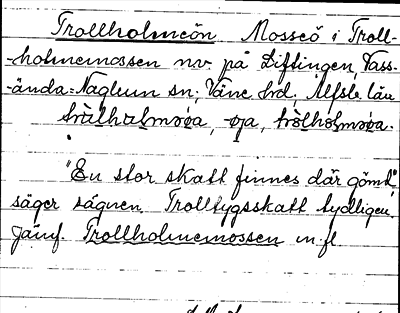 Trollholmeön Mosseö i Troll-
-holmemossen nv. på Liflingen, Vass-
-ända-Naglum sn; Väne hd, Älfsb. län
tròlhɷlmøa, -øja, tròlhɷlmøa.
"En stor skatt finnes där gömd",
säger sägnen. Trolltygsskatt tydligen,
Jämf. Trollholmemossen m. fl